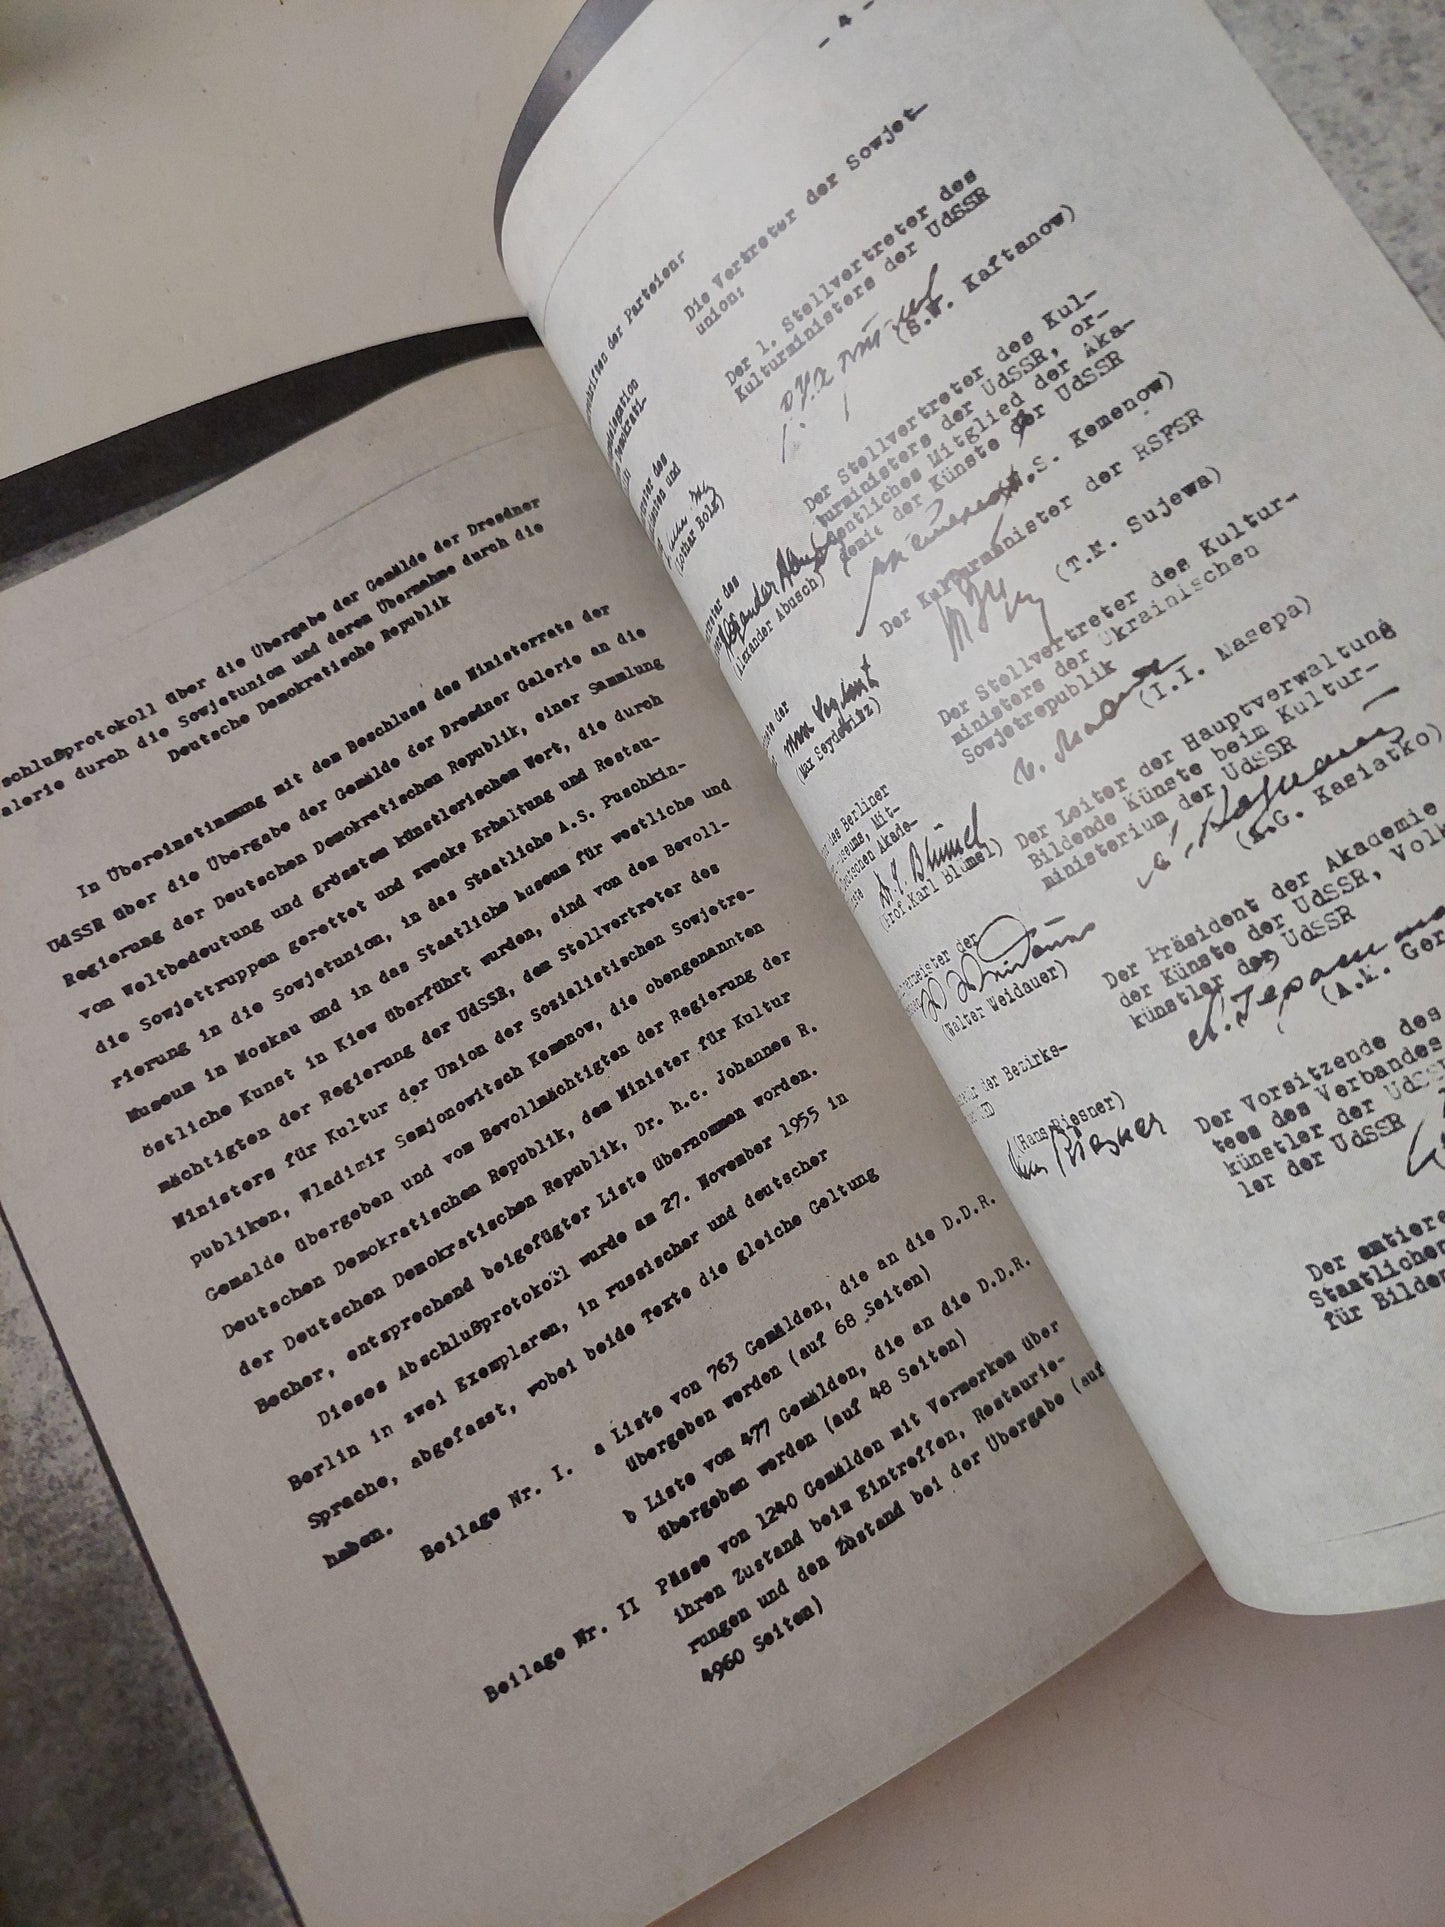 schlußprotokoll über die Übergabe der Gemälde der Dresdner
alerie durch die Sowjetunion und deren Übernahme durch die
Deutsche Demokratische Republik
In Übereinstimmung mit dem Beschluss des Ministerrats der
UdSSR über die Übergabe der Gemälde der Dresdner Galerie an die
Regierung der Deutschen Demokratischen Republik, einer Sammlung
von Weltbedeutung und grösstem künstlerischem Wert, die durch
die Sowjettruppen gerettet und zwecks Erhaltung und Restau-
rierung in die Sowjetunion, in das Staatliche A.S. Puschkin-
Museum in Moskau und in das Staatliche Museum für westliche und
östliche Kunst in Kiew überführt wurden, sind von dem Bevoll-
mächtigten der Regierung der UdSSR, dem Stellvertreter des
Ministers für Kultur der Union der Sozialistischen Sowjetre-
publiken, Wladimir Semjonowitsch Kemenow, die obengenannten
Gemälde übergeben und vom Bevollmächtigten der Regierung der
Deutschen Demokratischen Republik, dem Minister für Kultur
der Deutschen Demokratischen Republik, Dr. h.c. Johannes R.
Becher, entsprechend beigefügter Liste übernommen worden.
Dieses Abschlußprotokoll wurde am 27. November 1955 in
Berlin in zwei Exemplaren, in russischer und deutscher
Sprache, abgefasst, wobei beide Texte die gleiche Geltung
haben.
Beilage Nr. I. a Liste von 763 Gemälden, die an die D.D.R.
übergeben werden (auf 68 Seiten)
b Liste von 477 Gemälden, die an die D.D.R.
übergeben werden (auf 48 Seiten)
Beilage Nr. II Pässe von 1240 Gemälden mit Vermerken über
ihren Zustand beim Eintreffen, Restaurie-
rungen und den Zustand bei der Übergabe (auf
4960 Seiten)
- 4 -
schriften der Parteien:
(Lothar Bolz)
Alexander Abusch
(Alexander Abusch)
(Max Seydewitz)
des Berliner
Museums, Mit-
Deutschen Akade-
(Prof. Karl Blümel)
(Walter Weidauer)
der Bezirks-
(Hans Riesner)
Die Vertreter der Sowjet-
union:
Der 1. Stellvertreter des
Kulturministers der UdSSR
(S.W. Kaftanow)
Der Stellvertreter des Kul-
turministers der UdSSR, or-
dentliches Mitglied der Aka-
demie der Künste der UdSSR
W.S. Kemenow)
Der Kulturminister der RSFSR
(T.M. Sujewa)
Der Stellvertreter des Kultur-
ministers der Ukrainischen
Sowjetrepublik
(I.I. Masepa)
Der Leiter der Hauptverwaltung
Bildende Künste beim Kultur-
ministerium der UdSSR
(A.G. Kasiatko)
Der Präsident der Akademie
der Künste der UdSSR, Volk
künstler der UdSSR
(A.M. Ger
Der Vorsitzende des
tees des Verbandes
künstler der UdSSR
ler der UdSSR
Der amtiere
Staatlichen
für Bilden